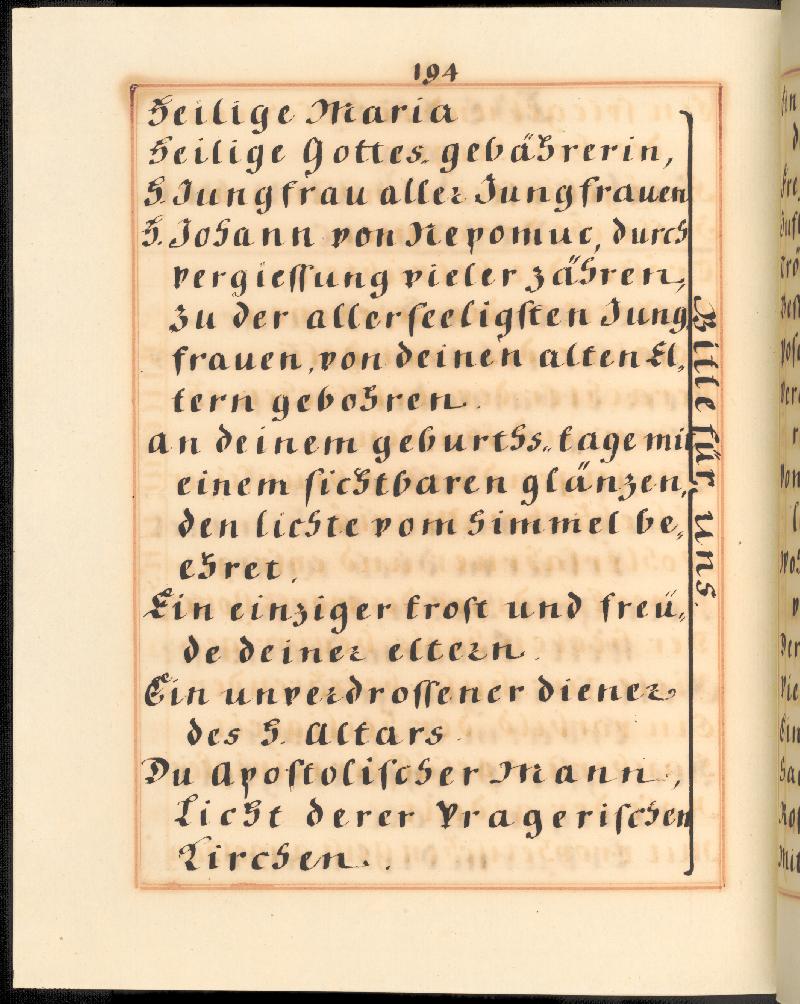 194
Heilige Maria
Heilige Gottes. gebährerin,
H. Jungfrau aller Jungfrauen
H. Johann von Nepomuc, durch
vergiessung vieler zähren,
zu der allerseeligsten Jung,
frauen, von deinen alten El,,
tern gebohren.
an deinem geburths,, tage mit
einem sichtbaren glänzen,,
den lichte vom himmel be,,
ehret.
Ein einziger trost und freü,,
de deiner eltern.
Ein unverdrossener diener
des H. Altars
Du Apostolischer Mann,
Licht derer Pragerischen
Kirchen.
Bitte für uns.